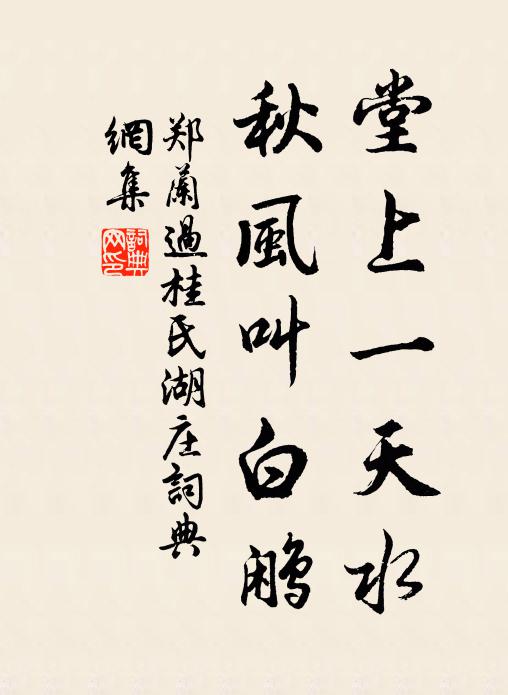 堂上一天水
秋風叫白鹇
郑蘭過桂氏湖庄詞典
網集
詞典
网印